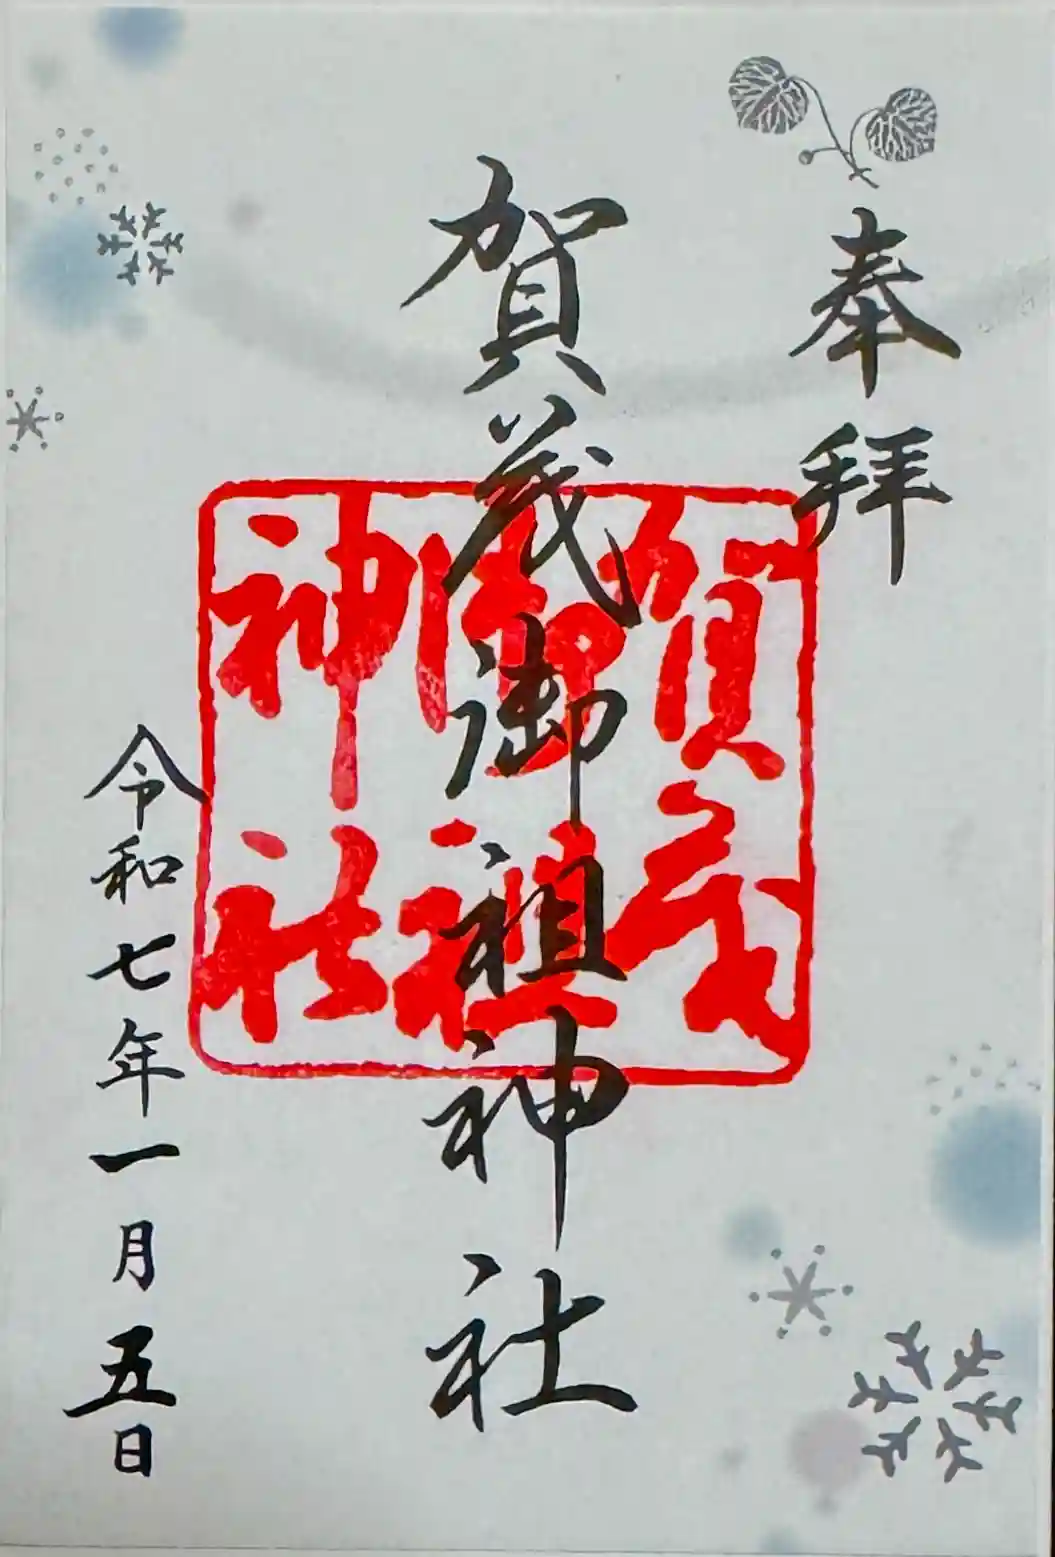 奉拝
賀茂御祖神社
賀茂
御祖
神社
令和七年一月五日